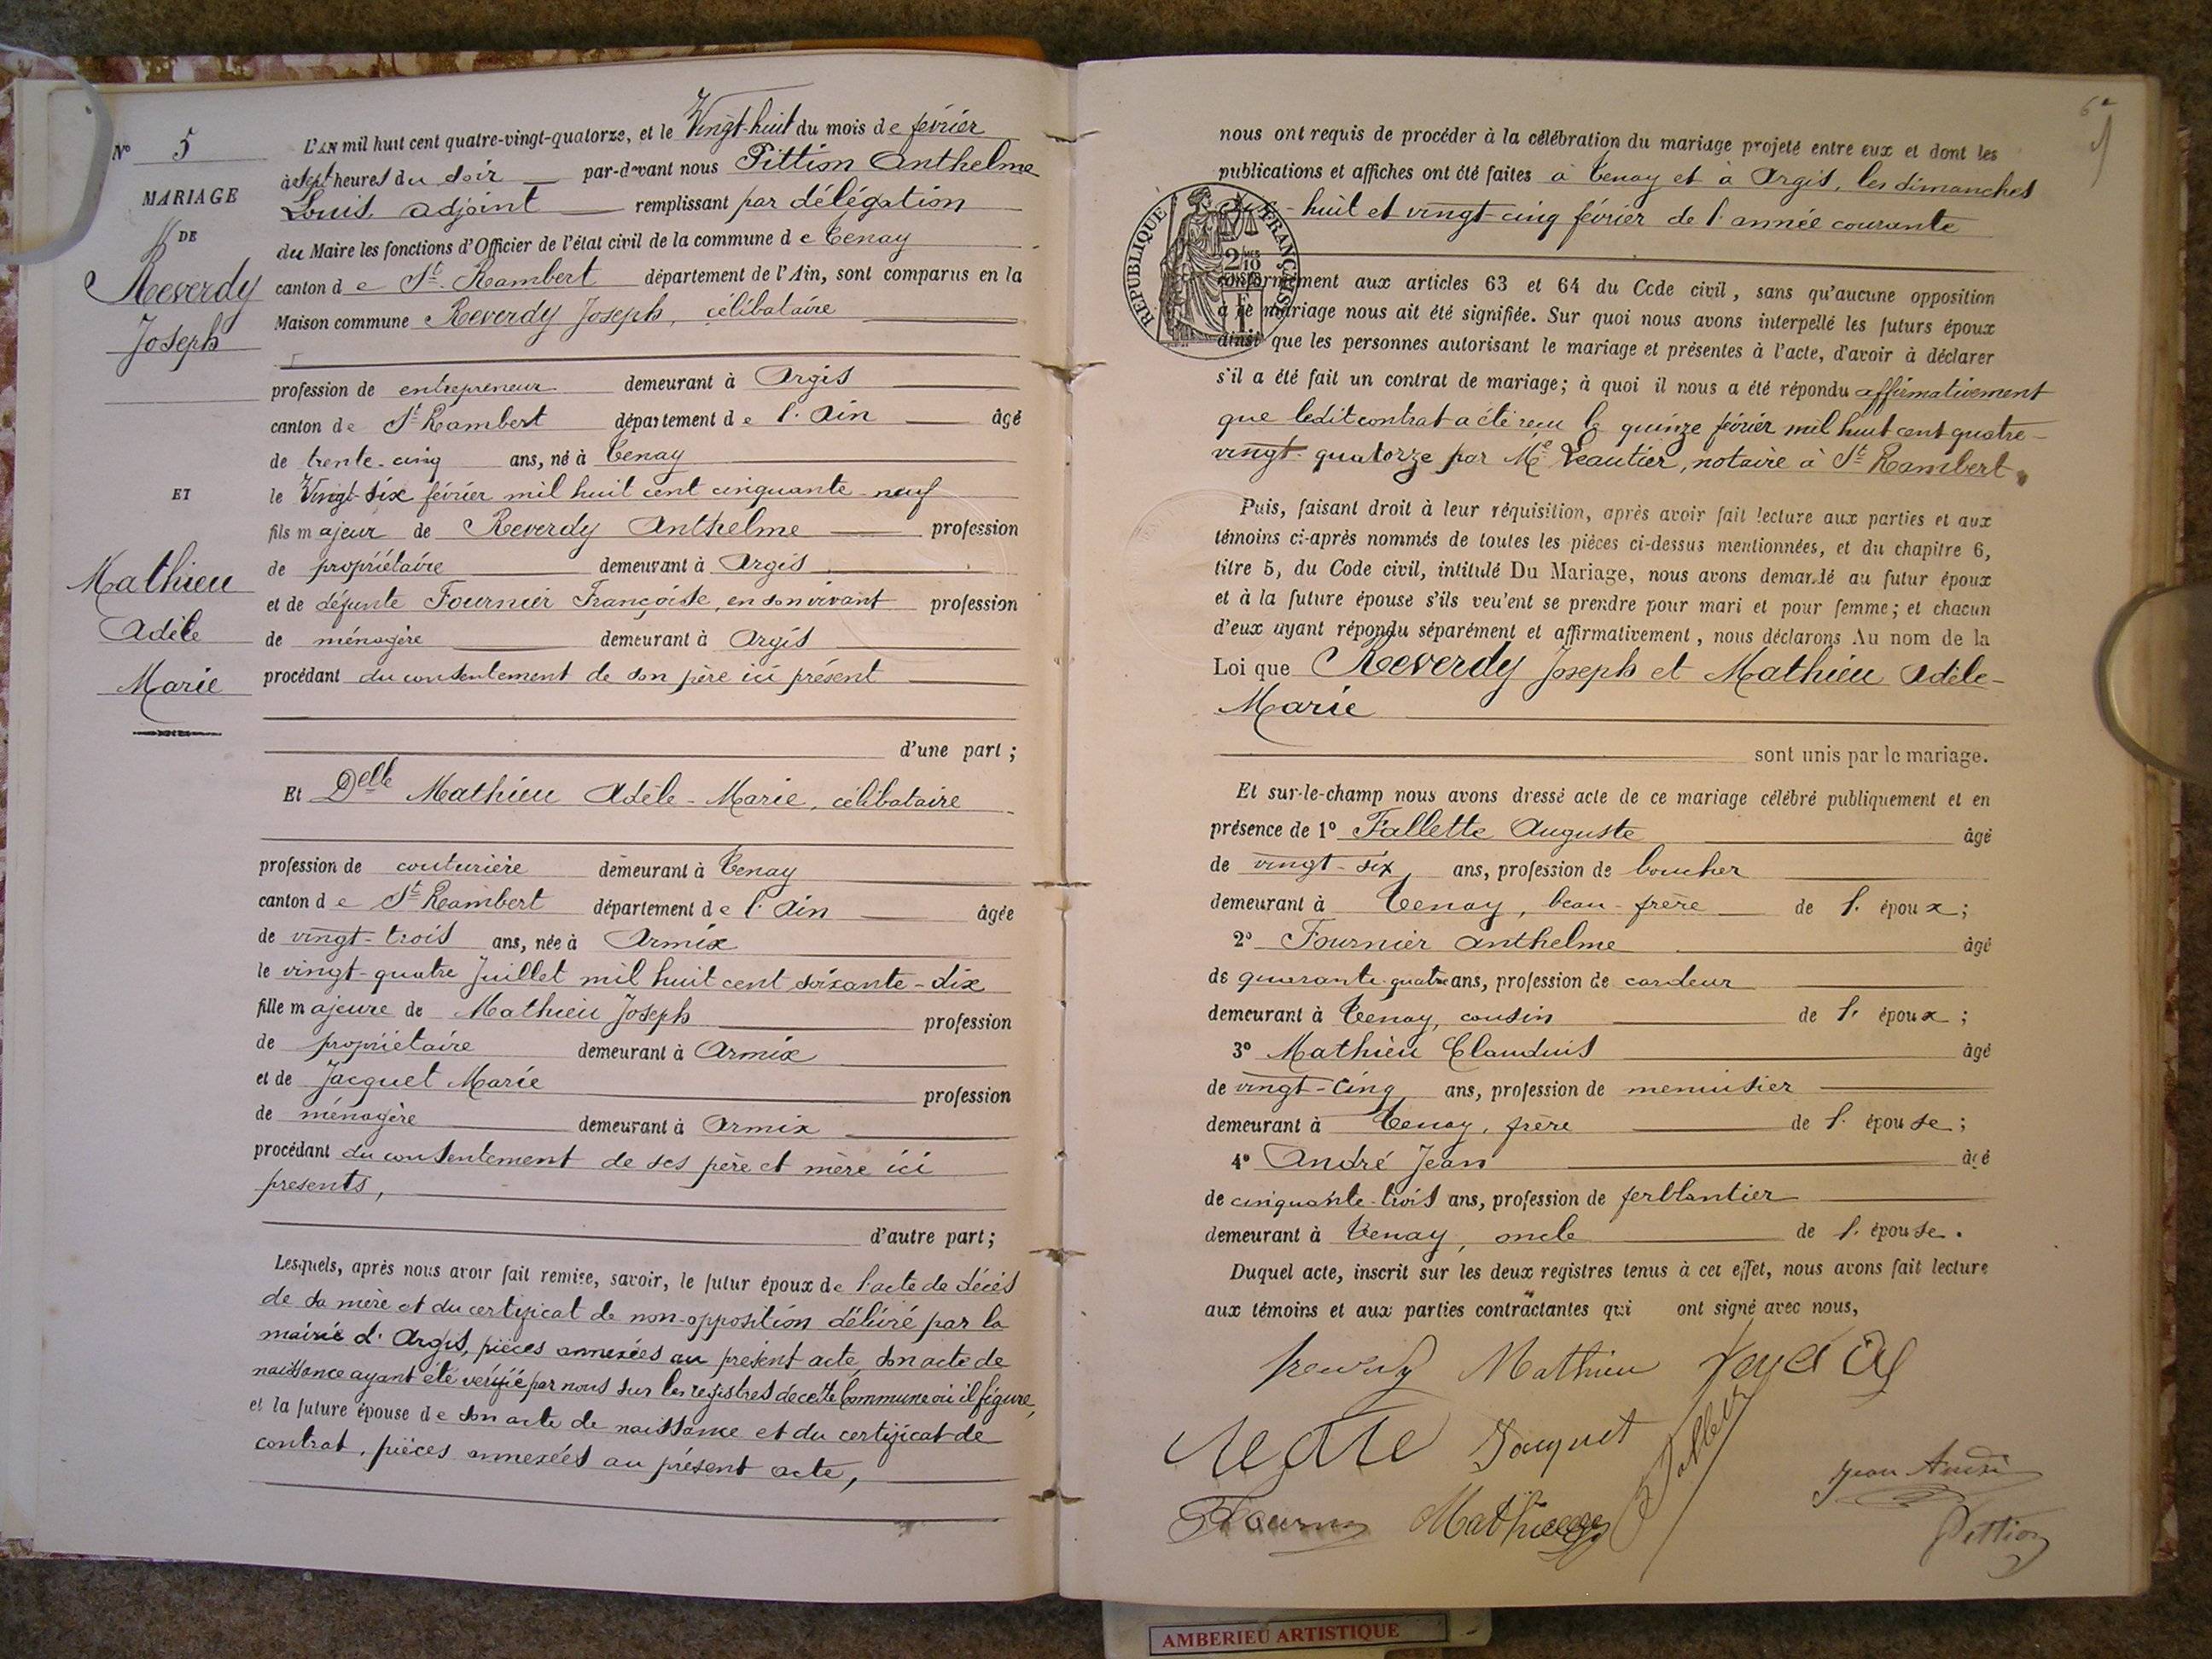 N° 5
MARIAGE
DE
Reverdy
Joseph
ET
Mathieu
Adèle
Marie
L'AN mil huit cent quatre-vingt-quatorze, et le Vingt-huit du mois de février
à sept heures du soir par-devant nous Pittion Anthelme
Louis adjoint remplissant par délégation
du Maire les fonctions d'Officier de l'état civil de la commune de Tenay
canton de St. Rambert département de l'Ain, sont comparus en la
Maison commune Reverdy Joseph, célibataire
profession de entrepreneur demeurant à Argis
canton de St Rambert département de l'Ain âgé
de trente-cinq ans, né à Tenay
le Vingt-six février mil huit cent cinquante-neuf
fils majeur de Reverdy Anthelme profession
de propriétaire demeurant à Argis
et de défunte Fournier Françoise, en son vivant profession
de ménagère demeurant à Argis
procédant du consentement de son père ici présent
d'une part ;
Et Delle Mathieu Adèle-Marie, célibataire
profession de couturière demeurant à Tenay
canton de St Rambert département de l'Ain âgée
de vingt-trois ans, née à Armix
le vingt-quatre Juillet mil huit cent soixante-dix
fille majeure de Mathieu Joseph profession
de propriétaire demeurant à Armix
et de Jacquet Marie profession
de ménagère demeurant à Armix
procédant du consentement de ses père et mère ici
presents,
d'autre part ;
Lesquels, après nous avoir fait remise, savoir, le futur époux de l'acte de décès
de sa mère et du certificat de non-opposition délivré par la
mairie d'Argis, pièces annexées au présent acte, son acte de
naissance ayant été vérifié par nous sur les registres de cette Commune où il figure,
et la future épouse de son acte de naissance et du certificat de
contrat, pièces annexées au présent acte,
nous ont requis de procéder à la célébration du mariage projeté entre eux et dont les
publications et affiches ont été faites à Tenay et à Argis, les dimanches
dix-huit et vingt-cinq février de l'année courante
RÉPUBLIQUE FRANÇAISE
conformément aux articles 63 et 64 du Code civil, sans qu'aucune opposition
à ce mariage nous ait été signifiée. Sur quoi nous avons interpellé les futurs époux
ainsi que les personnes autorisant le mariage et présentes à l'acte, d'avoir à déclarer
s'il a été fait un contrat de mariage ; à quoi il nous a été répondu affirmativement
que ledit contrat a été reçu le quinze février mil huit cent quatre-
vingt-quatorze par Me Leautier, notaire à St Rambert.
Puis, faisant droit à leur réquisition, après avoir fait lecture aux parties et aux
témoins ci-après nommés de toutes les pièces ci-dessus mentionnées, et du chapitre 6,
titre 5, du Code civil, intitulé Du Mariage, nous avons demandé au futur époux
et à la future épouse s'ils veulent se prendre pour mari et pour femme ; et chacun
d'eux ayant répondu séparément et affirmativement, nous déclarons Au nom de la
Loi que Reverdy Joseph et Mathieu Adèle-
Marie
sont unis par le mariage.
Et sur-le-champ nous avons dressé acte de ce mariage célébré publiquement et en
présence de 1° Fallette Auguste âgé
de vingt-six ans, profession de boucher
demeurant à Tenay, beau-frère de l'époux ;
2° Fournier Anthelme âgé
de quarante-quatre ans, profession de cardeur
demeurant à Tenay, cousin de l'époux ;
3° Mathieu Claudius âgé
de vingt-cinq ans, profession de menuisier
demeurant à Tenay, frère de l'épouse ;
4° André Jean âgé
de cinquante-trois ans, profession de ferblantier
demeurant à Tenay, oncle de l'épouse.
Duquel acte, inscrit sur les deux registres tenus à cet effet, nous avons fait lecture
aux témoins et aux parties contractantes qui ont signé avec nous,
Mathieu
Jacquet
Jean André
Mathieu
Pittion
AMBERIEU ARTISTIQUE